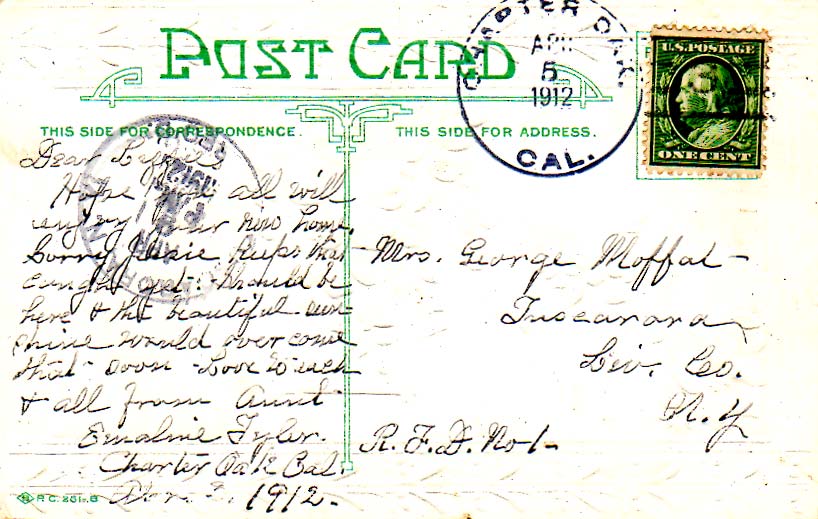 POST CARD
CHARTER OAK.
APR
5
1912
CAL.
U.S. POSTAGE
ONE CENT
THIS SIDE FOR CORRESPONDENCE.
THIS SIDE FOR ADDRESS.
Dear
Hope you all will
enjoy your new home.
Sorry Jessie keeps that
cough yet. Should be
here & the beautiful sun
shine would over come
that soon - Love to each
& all from Aunt
Emaline Tyler.
Charter Oak Cal.
1912-
Mrs. George Moffat
Tuscarora
Liv. Co.
N.Y
R.F.D. No 1-
R.C. 251.B